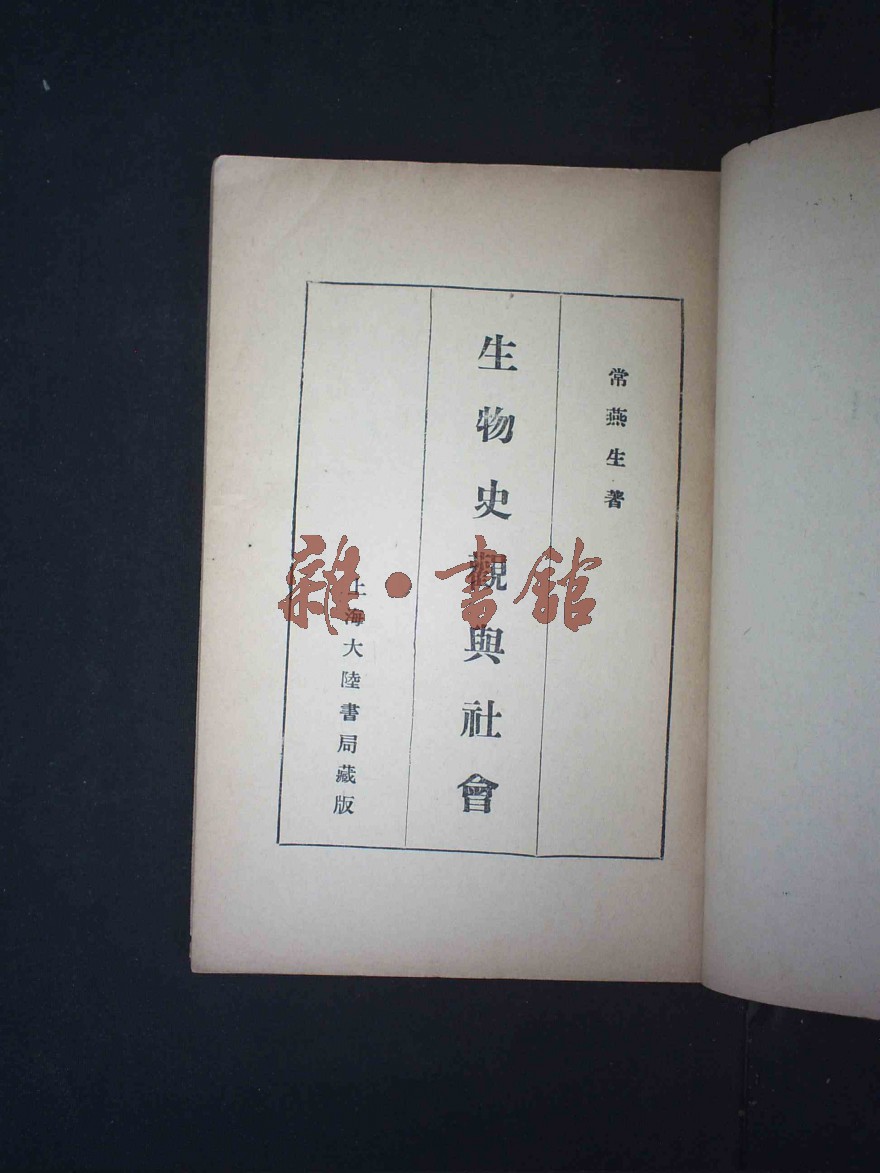 常燕生著
生物史觀與社會
上海大陸書局藏版
雜·書館